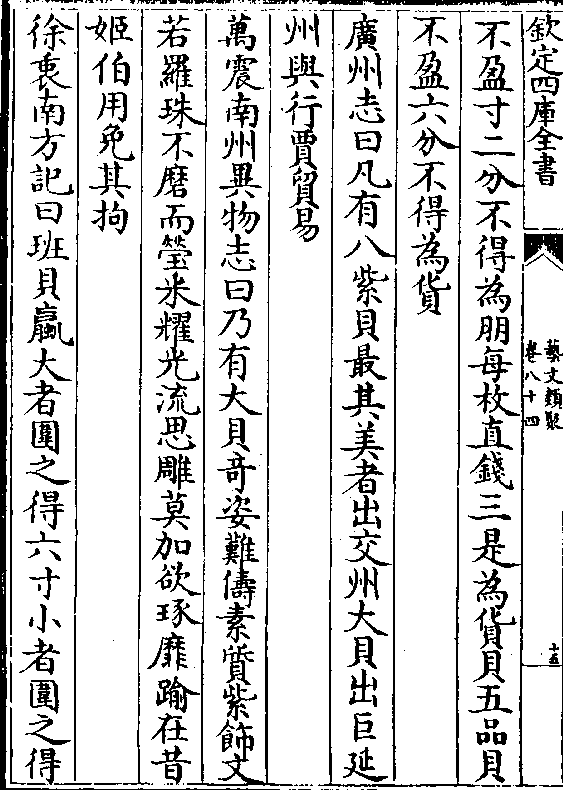 欽定四庫全書
藝文類聚
卷八十四
十五
不盈寸二分不得為朋每枚直錢三是為貨貝五品貝
不盈六分不得為貨
廣州志曰凡有八紫貝最其美者出交州大貝出巨延
州與行賈貿易
萬震南州異物志曰乃有大貝奇姿難儔素質紫飾文
若羅珠不磨而瑩采耀光流思雕莫加欲琢靡踰在昔
姬伯用免其拘
徐衷南方記曰班貝蠃大者圍之得六寸小者圍之得